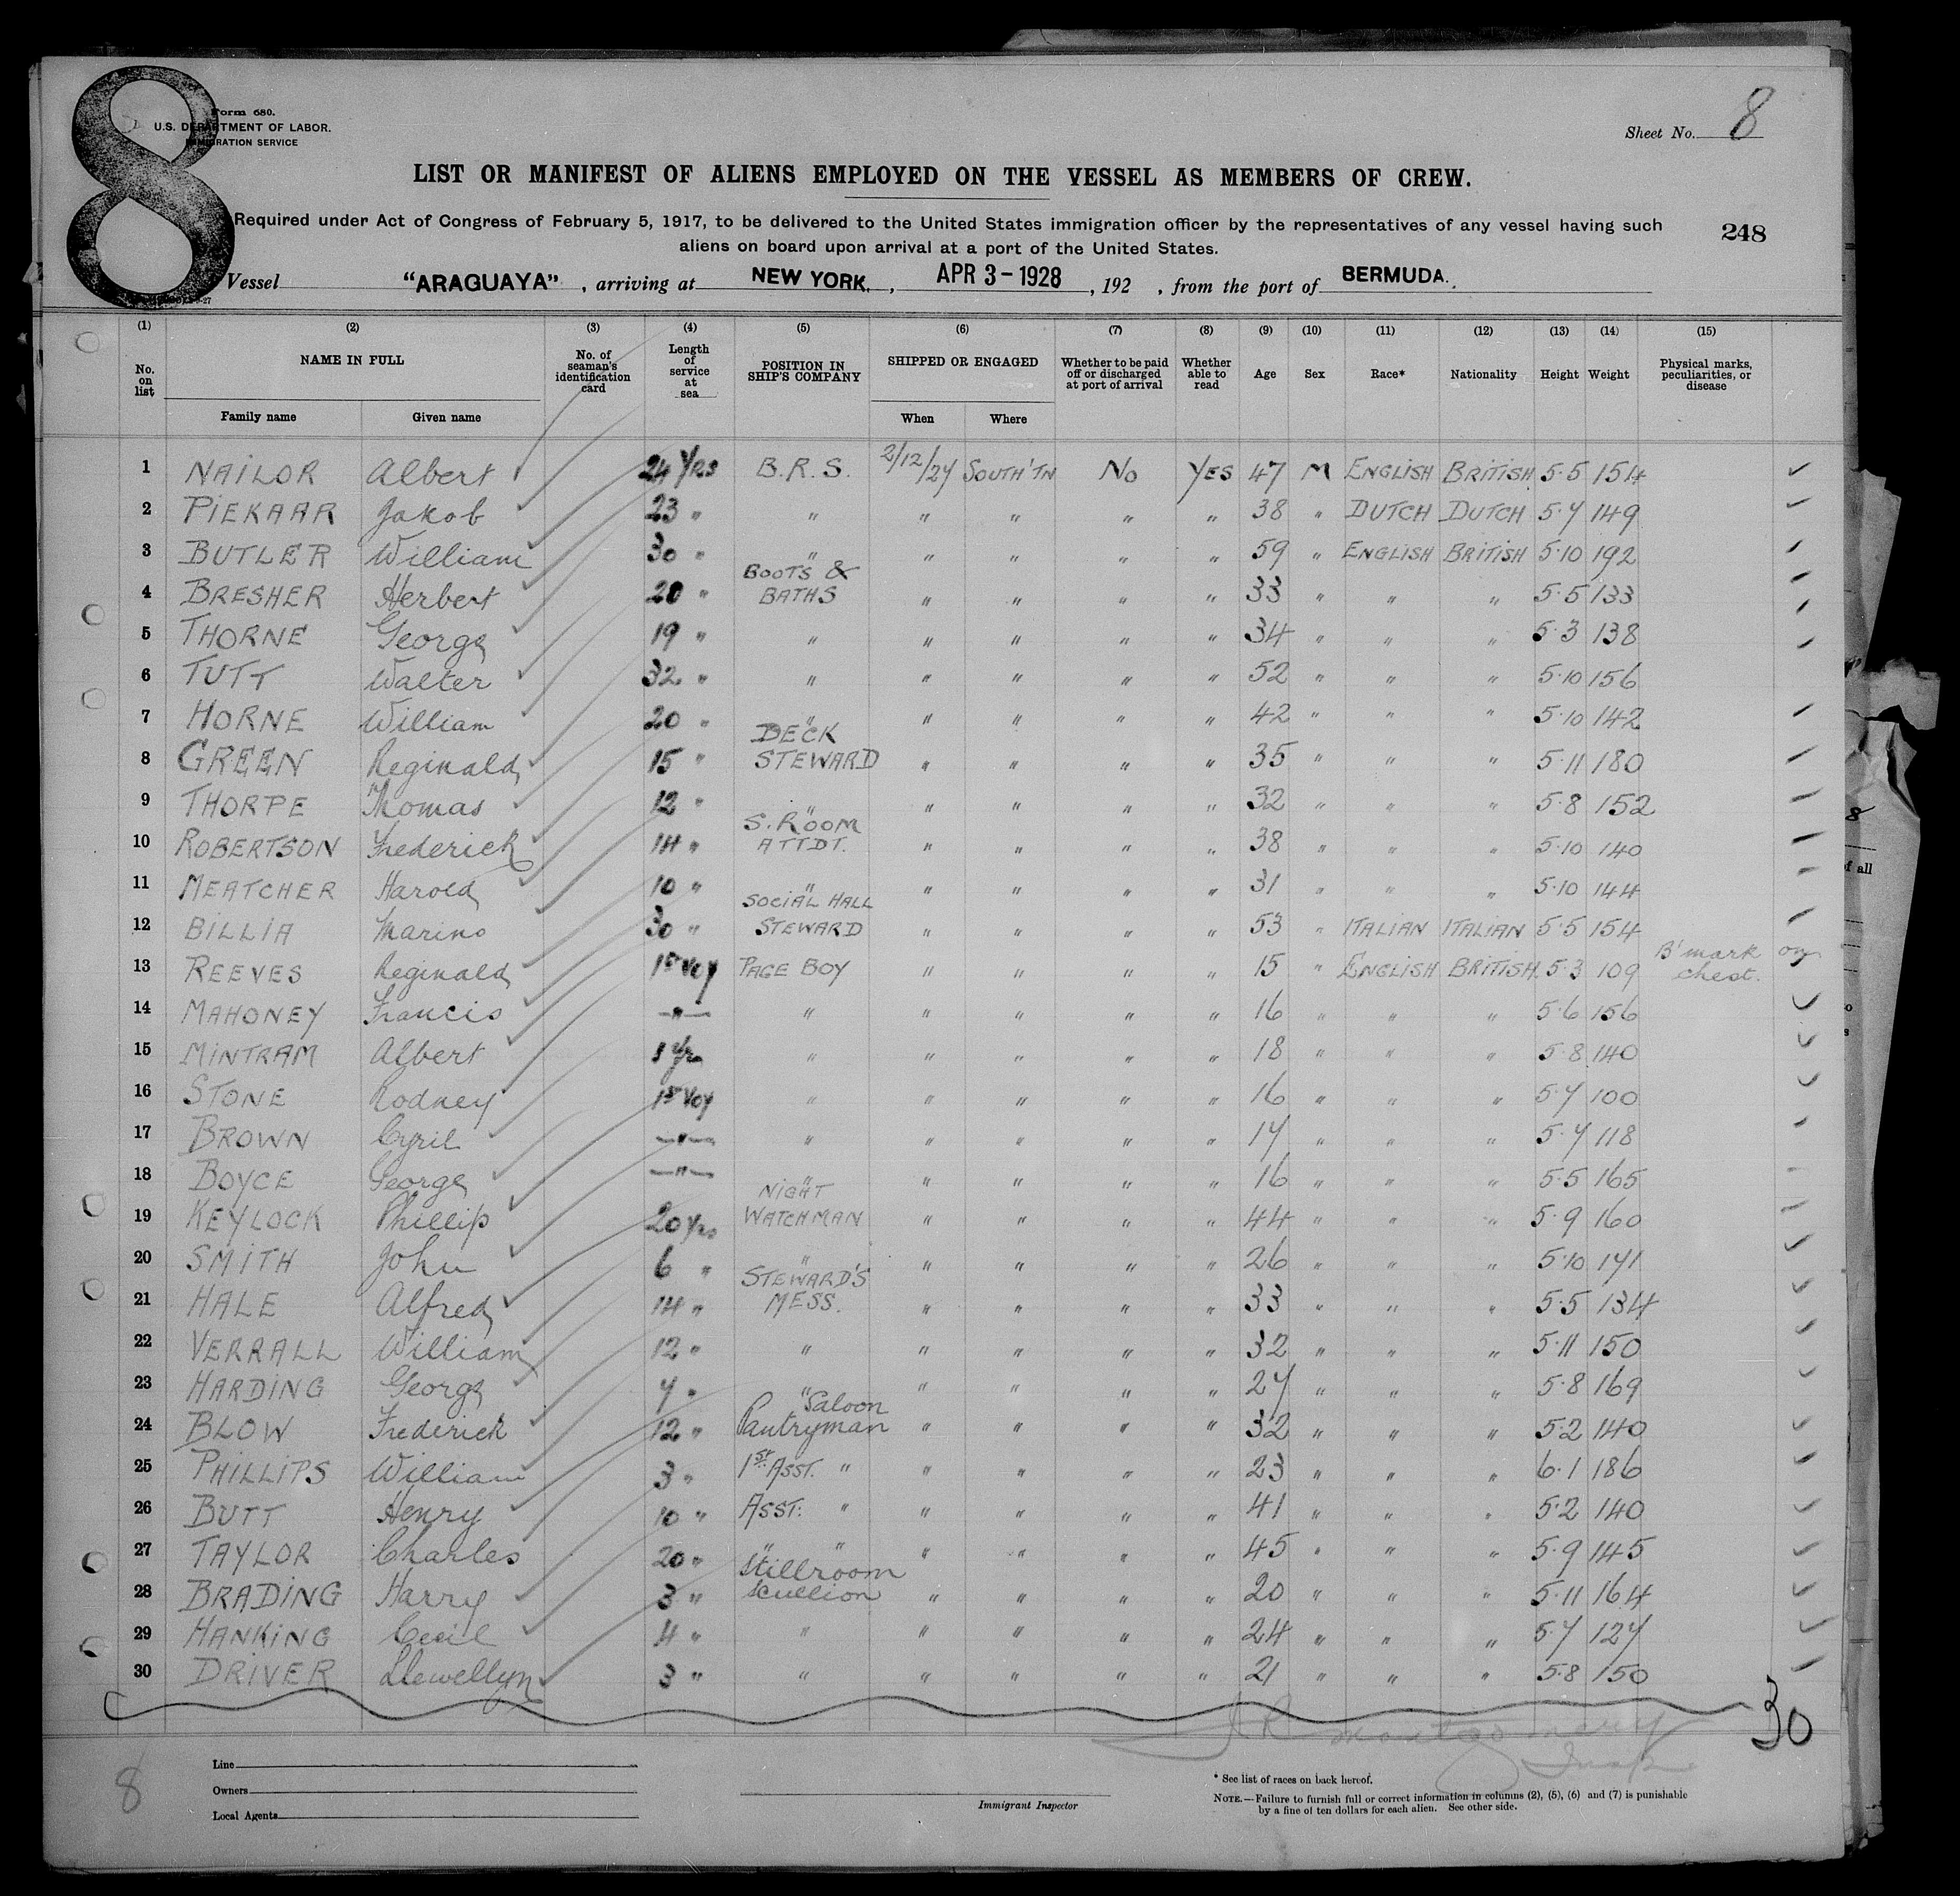 8
Form 680.
U.S. DEPARTMENT OF LABOR.
IMMIGRATION SERVICE
Sheet No. 8
LIST OR MANIFEST OF ALIENS EMPLOYED ON THE VESSEL AS MEMBERS OF CREW.
Required under Act of Congress of February 5, 1917, to be delivered to the United States immigration officer by the representatives of any vessel having such
aliens on board upon arrival at a port of the United States.
248
Vessel "ARAGUAYA", arriving at NEW YORK, APR 3-1928, 192 , from the port of BERMUDA.
(1) (2) (3) (4) (5) (6) (7) (8) (9) (10) (11) (12) (13) (14) (15)
No. on list NAME IN FULL No. of seaman's identification card Length of service at sea POSITION IN SHIP'S COMPANY SHIPPED OR ENGAGED Whether to be paid off or discharged at port of arrival Whether able to read Age Sex Race* Nationality Height Weight Physical marks, peculiarities, or disease
Family name Given name When Where
1 NAILOR Albert 24 Yrs B.R.S. 2/12/27 SOUTH'TN No YES 47 M ENGLISH BRITISH 5.5 154
2 PIEKAAR Jakob 23 " " " " " " 38 " DUTCH DUTCH 5.7 149
3 BUTLER William 30 " " " " " " 59 " ENGLISH BRITISH 5.10 192
4 BRESHER Herbert 20 " BOOTS & BATHS " " " " 33 " " " 5.5 133
5 THORNE George 19 " " " " " " 34 " " " 5.3 138
6 TUTT Walter 32 " " " " " " 52 " " " 5.10 156
7 HORNE William 20 " " " " " " 42 " " " 5.10 142
8 GREEN Reginald 15 " DECK STEWARD " " " " 35 " " " 5.11 180
9 THORPE Thomas 12 " " " " " " 32 " " " 5.8 152
10 ROBERTSON Frederick 14 " S. ROOM ATTDT. " " " " 38 " " " 5.10 140
11 MEATCHER Harold 10 " " " " " " 31 " " " 5.10 144
12 BILLIA Marino 30 " SOCIAL HALL STEWARD " " " " 53 " ITALIAN ITALIAN 5.5 154
13 REEVES Reginald 1st Voy PAGE BOY " " " " 15 " ENGLISH BRITISH. 5.3 109 B'mark on chest.
14 MAHONEY Francis —"— " " " " " 16 " " " 5.6 156
15 MINTRAM Albert 1 Yr " " " " " 18 " " " 5.8 140
16 STONE Rodney 1st Voy " " " " " 16 " " " 5.7 100
17 BROWN Cyril —"— " " " " " 17 " " " 5.7 118
18 BOYCE George —"— " " " " " 16 " " " 5.5 165
19 KEYLOCK Phillip 20 Yrs NIGHT WATCHMAN " " " " 44 " " " 5.9 160
20 SMITH John 6 " " " " " " 26 " " " 5.10 141
21 HALE Alfred 14 " STEWARD'S MESS. " " " " 33 " " " 5.5 134
22 VERRALL William 12 " " " " " " 32 " " " 5.11 150
23 HARDING George 7 " " " " " " 27 " " " 5.8 169
24 BLOW Frederick 12 " Saloon Pantryman " " " " 32 " " " 5.2 140
25 PHILLIPS William 3 " 1st ASST. " " " " " 23 " " " 6.1 186
26 BUTT Henry 10 " ASST: " " " " " 41 " " " 5.2 140
27 TAYLOR Charles 20 " " " " " " " 45 " " " 5.9 145
28 BRADING Harry 3 " Stillroom Scullion " " " " 20 " " " 5.11 164
29 HANKING Cecil 4 " " " " " " 24 " " " 5.7 127
30 DRIVER Llewellyn 3 " " " " " " 21 " " " 5.8 150
30
J R Montgomery
8
Line
Owners
Local Agents
Immigrant Inspector
* See list of races on back hereof.
NOTE.—Failure to furnish full or correct information in columns (2), (5), (6) and (7) is punishable
by a fine of ten dollars for each alien. See other side.